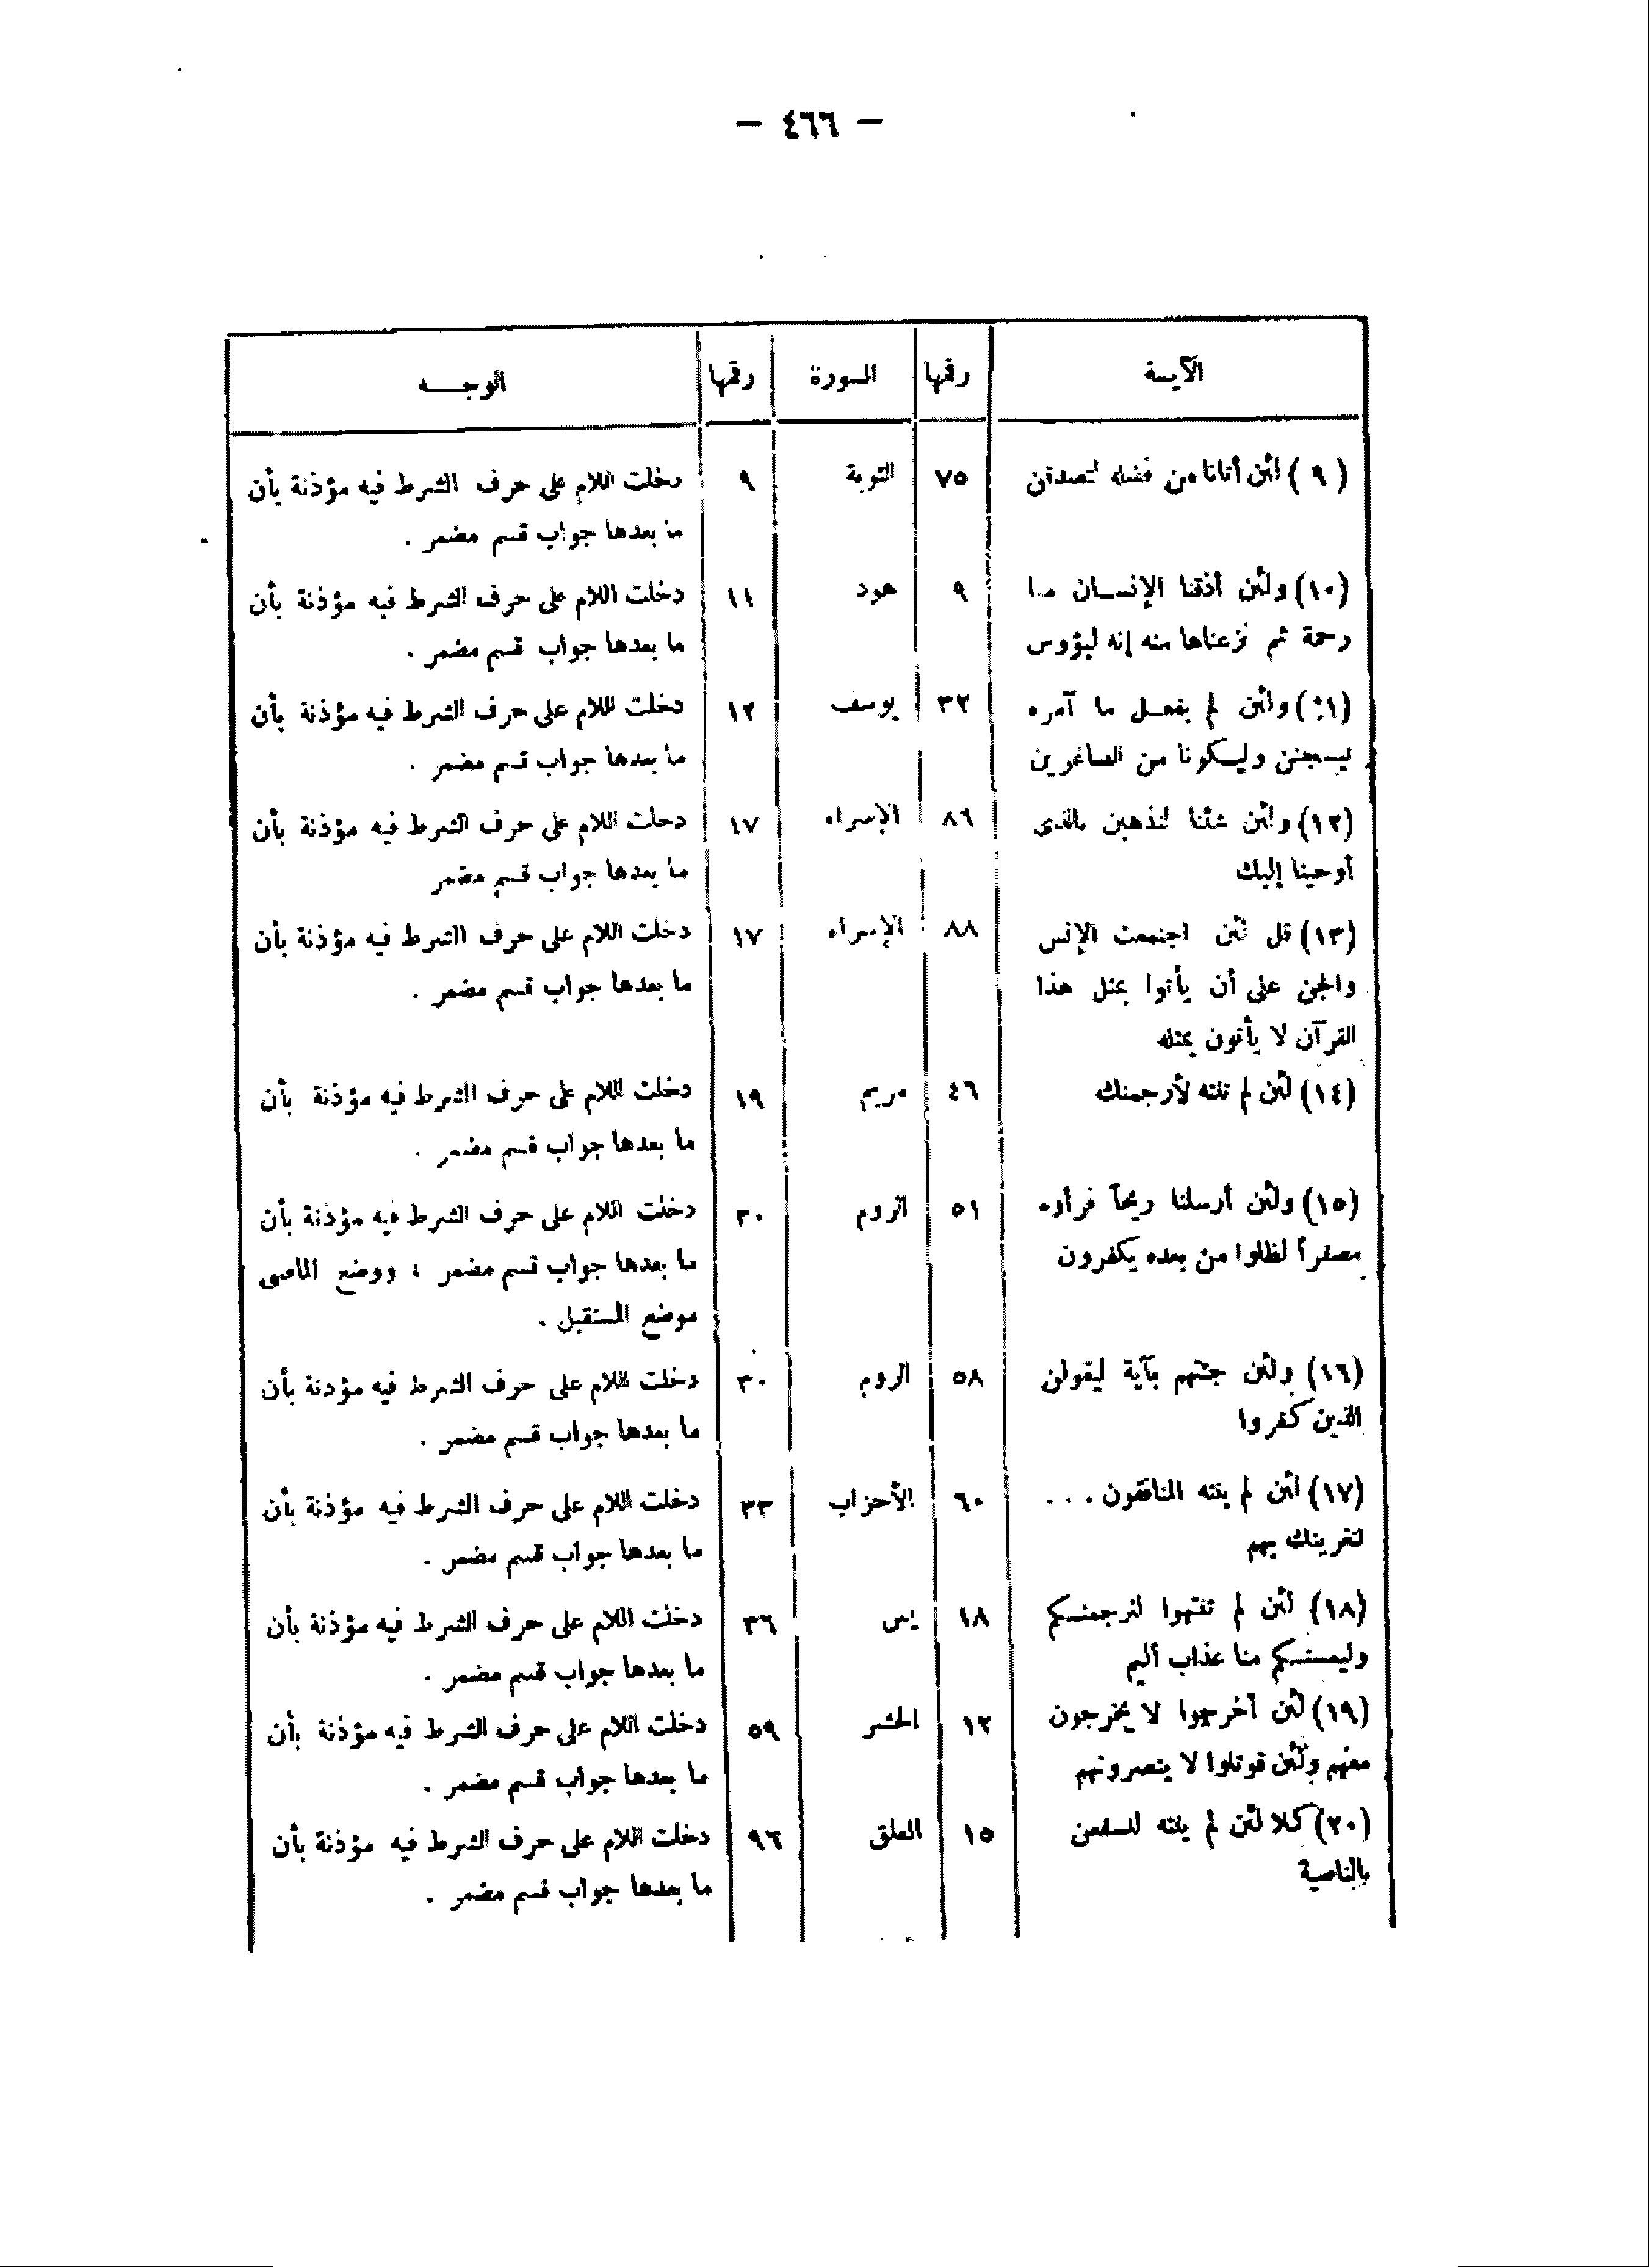 — ٤٦٦ —
الآيـة رقمها السورة رقمها الوجـــه
( ٩ ) لئن أتانا من فضله لنصدقن ٧٥ التوبة ٩ دخلت اللام على حرف الشرط فيه مؤذنة بأن
ما بعدها جواب قسم مضمر .
(١٠) ولئن أذقنا الإنسـان منا ٩ هود ١١ دخلت اللام على حرف الشرط فيه مؤذنة بأن
رحمة ثم نزعناها منه إنه ليؤوس ما بعدها جواب قسم مضمر .
(١١) ولئن لم يفعـل ما آمره ٣٢ يوسف ١٢ دخلت اللام على حرف الشرط فيه مؤذنة بأن
ليسجنن وليكونا من الصاغرين ما بعدها جواب قسم مضمر .
(١٢) ولئن شئنا لنذهبن بالذى ٨٦ الإسراء ١٧ دخلت اللام على حرف الشرط فيه مؤذنة بأن
أوحينا إليك ما بعدها جواب قسم مضمر
(١٣) قل لئن اجتمعت الإنس ٨٨ الإسراء ١٧ دخلت اللام على حرف الشرط فيه مؤذنة بأن
والجن على أن يأتوا بمثل هذا ما بعدها جواب قسم مضمر .
القرآن لا يأتون بمثله
(١٤) لئن لم تنته لأرجمنك ٤٦ مريم ١٩ دخلت اللام على حرف الشرط فيه مؤذنة بأن
ما بعدها جواب قسم مضمر .
(١٥) ولئن أرسلنا ريحاً فرأوه ٥١ الروم ٣٠ دخلت اللام على حرف الشرط فيه مؤذنة بأن
مصفراً لظلوا من بعده يكفرون ما بعدها جواب قسم مضمر ، ووضع الماضى
موضع المستقبل .
(١٦) ولئن جئتهم بآية ليقولن ٥٨ الروم ٣٠ دخلت اللام على حرف الشرط فيه مؤذنة بأن
الذين كفروا ما بعدها جواب قسم مضمر .
(١٧) لئن لم ينته المنافقون . . . ٦٠ الأحزاب ٣٣ دخلت اللام على حرف الشرط فيه مؤذنة بأن
لنغرينك بهم ما بعدها جواب قسم مضمر .
(١٨) لئن لم تنتهوا لنرجمنـكم ١٨ يس ٣٦ دخلت اللام على حرف الشرط فيه مؤذنة بأن
وليمسنـكم منا عذاب أليم ما بعدها جواب قسم مضمر .
(١٩) لئن أخرجوا لا يخرجون ١٢ الحشر ٥٩ دخلت اللام على حرف الشرط فيه مؤذنة بأن
معهم ولئن قوتلوا لا ينصرونهم ما بعدها جواب قسم مضمر .
(٢٠) كلا لئن لم ينته لنسفعن ١٥ العلق ٩٦ دخلت اللام على حرف الشرط فيه مؤذنة بأن
بالناصية ما بعدها جواب قسم مضمر .